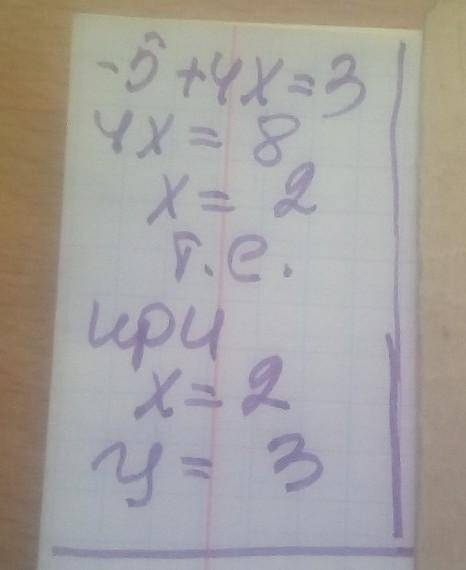 -5+4x=3
4x= 8
x= 2
т.е.
при
x=2
y= 3